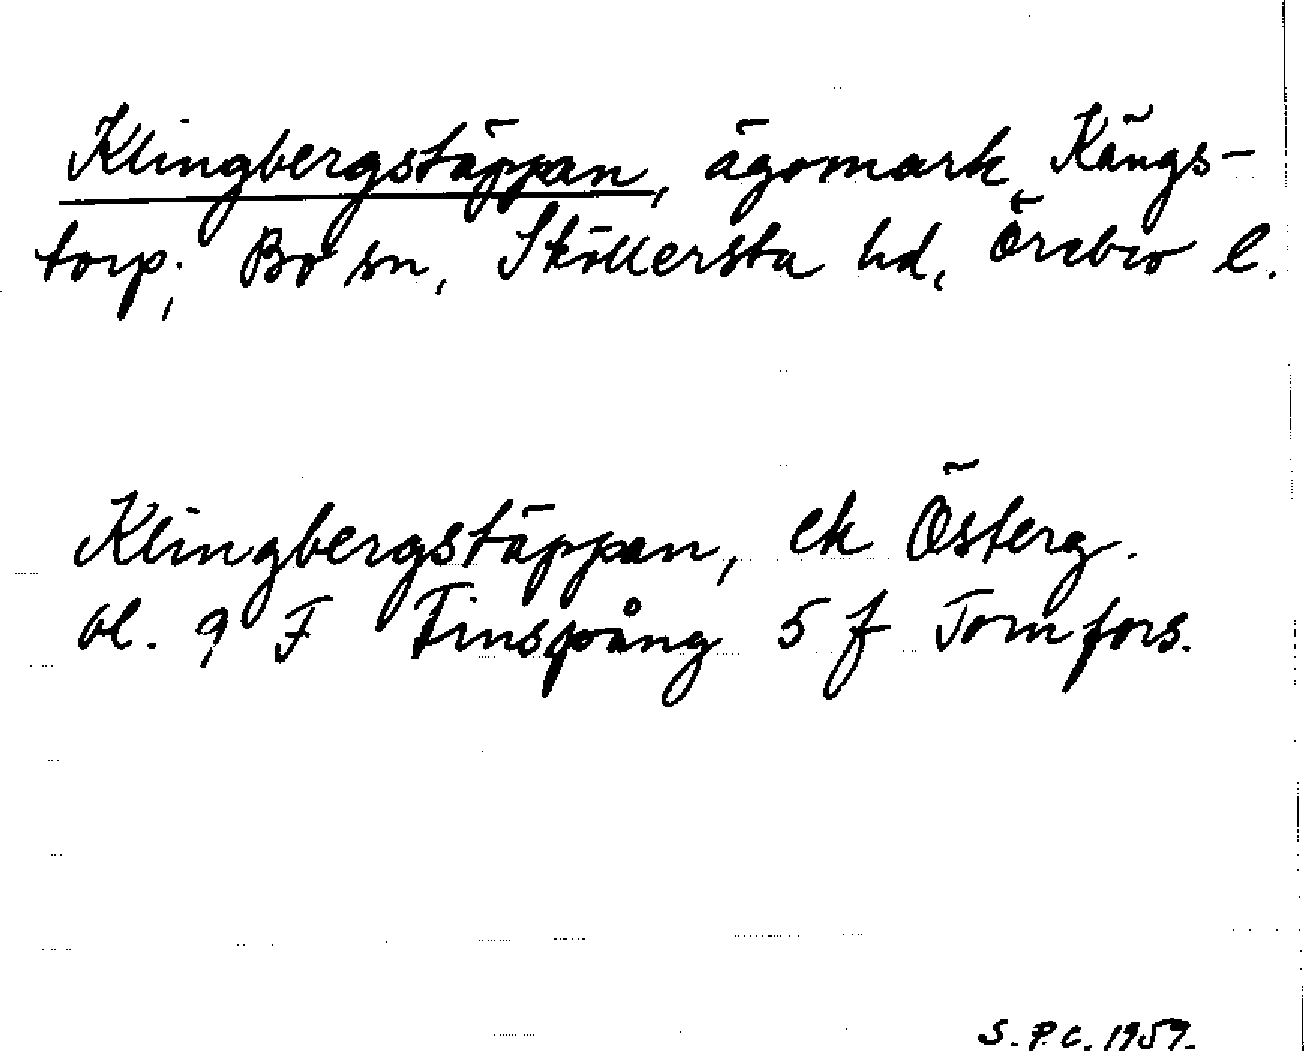 Klingbergstäppan, ägomark, Kängs-
torp, Bo sn, Sköllersta hd, Örebro l.
Klingbergstäppan, ek Österg.
bl. 9 F Finspång 5 f Tomfors.
S.P.C. 1959.